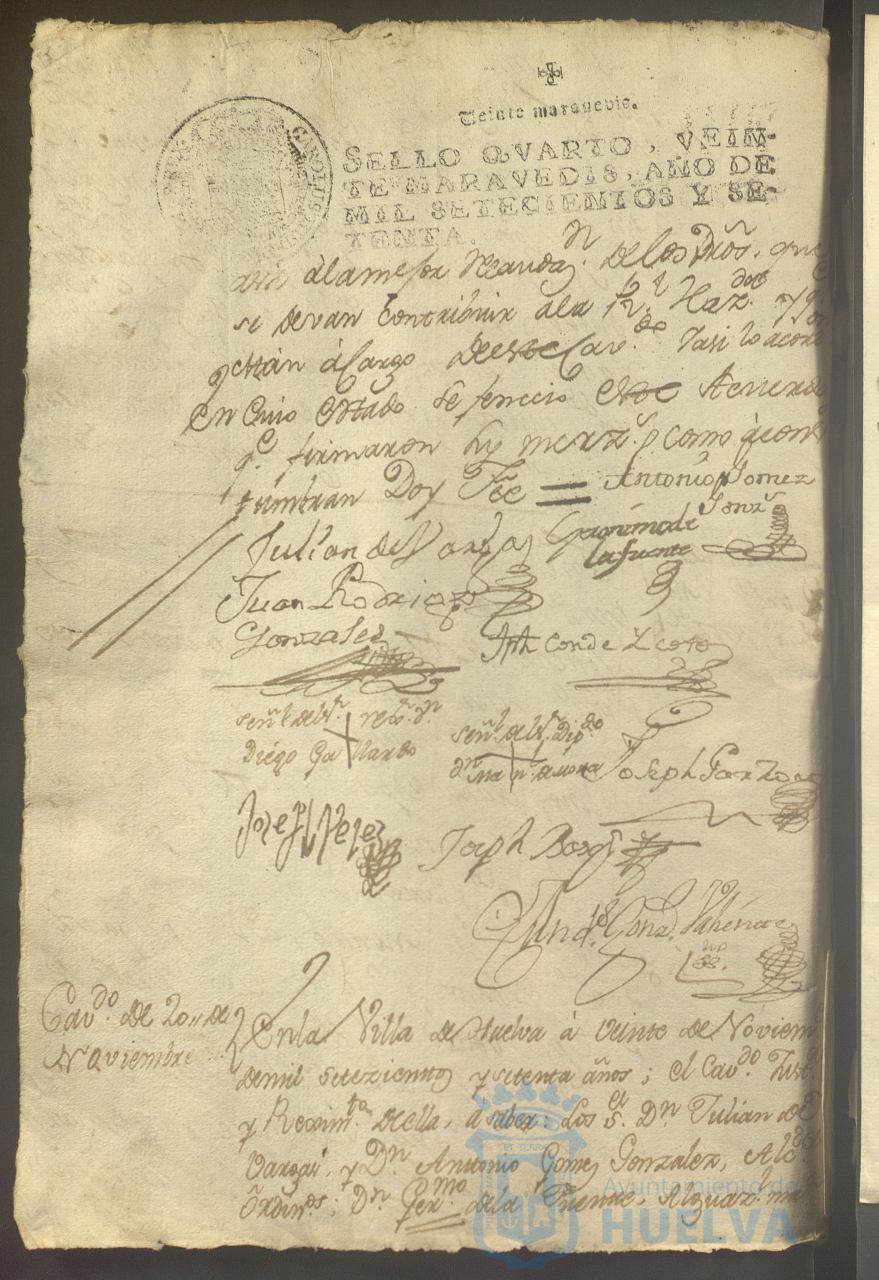 Veinte maravedis.
SELLO QVARTO, VEIN-
TE MARAVEDIS, AÑO DE
MIL SETECIENTOS Y SE-
TENTA.
CAROLUS
à la mejor Recaudaz.n de los Dros. que
se devan Contribuir a la Hazda y
qe están à Cargo de este Cavdo. Yasi lo acor
en Cuio estado se fenecio este Acuerdo
qe. firmaron sus mercz.s como acos
tumbran Doy Fée =
Antonio Gomez
Gonz.s
Julian de Vargas
Geronimo de
la fuente
Juan Rodriguez
Gonzales
Jph Conde Y coto
señ.l de + rexor. Dn
Diego Gallardo
señ.l de + Dip.do
Joseph Garzon
Joseph Velez
Joseph Borg
Gonz. Valiente
Cavdo. de 20,, de
Noviembre
En la Villa de Huelva à Veinte de Noviem
de mil setezientos y setenta años; el Cavdo. Just.a
y Reximto. de ella, à saber: Los S.es Dn. Julian de
Vargas, y Dn. Antonio Gomez Gonzalez, Alc.des
Ordin.os; Dn. Germo. de la Fuente, Alguazl. ma
Ayuntamiento de
HUELVA